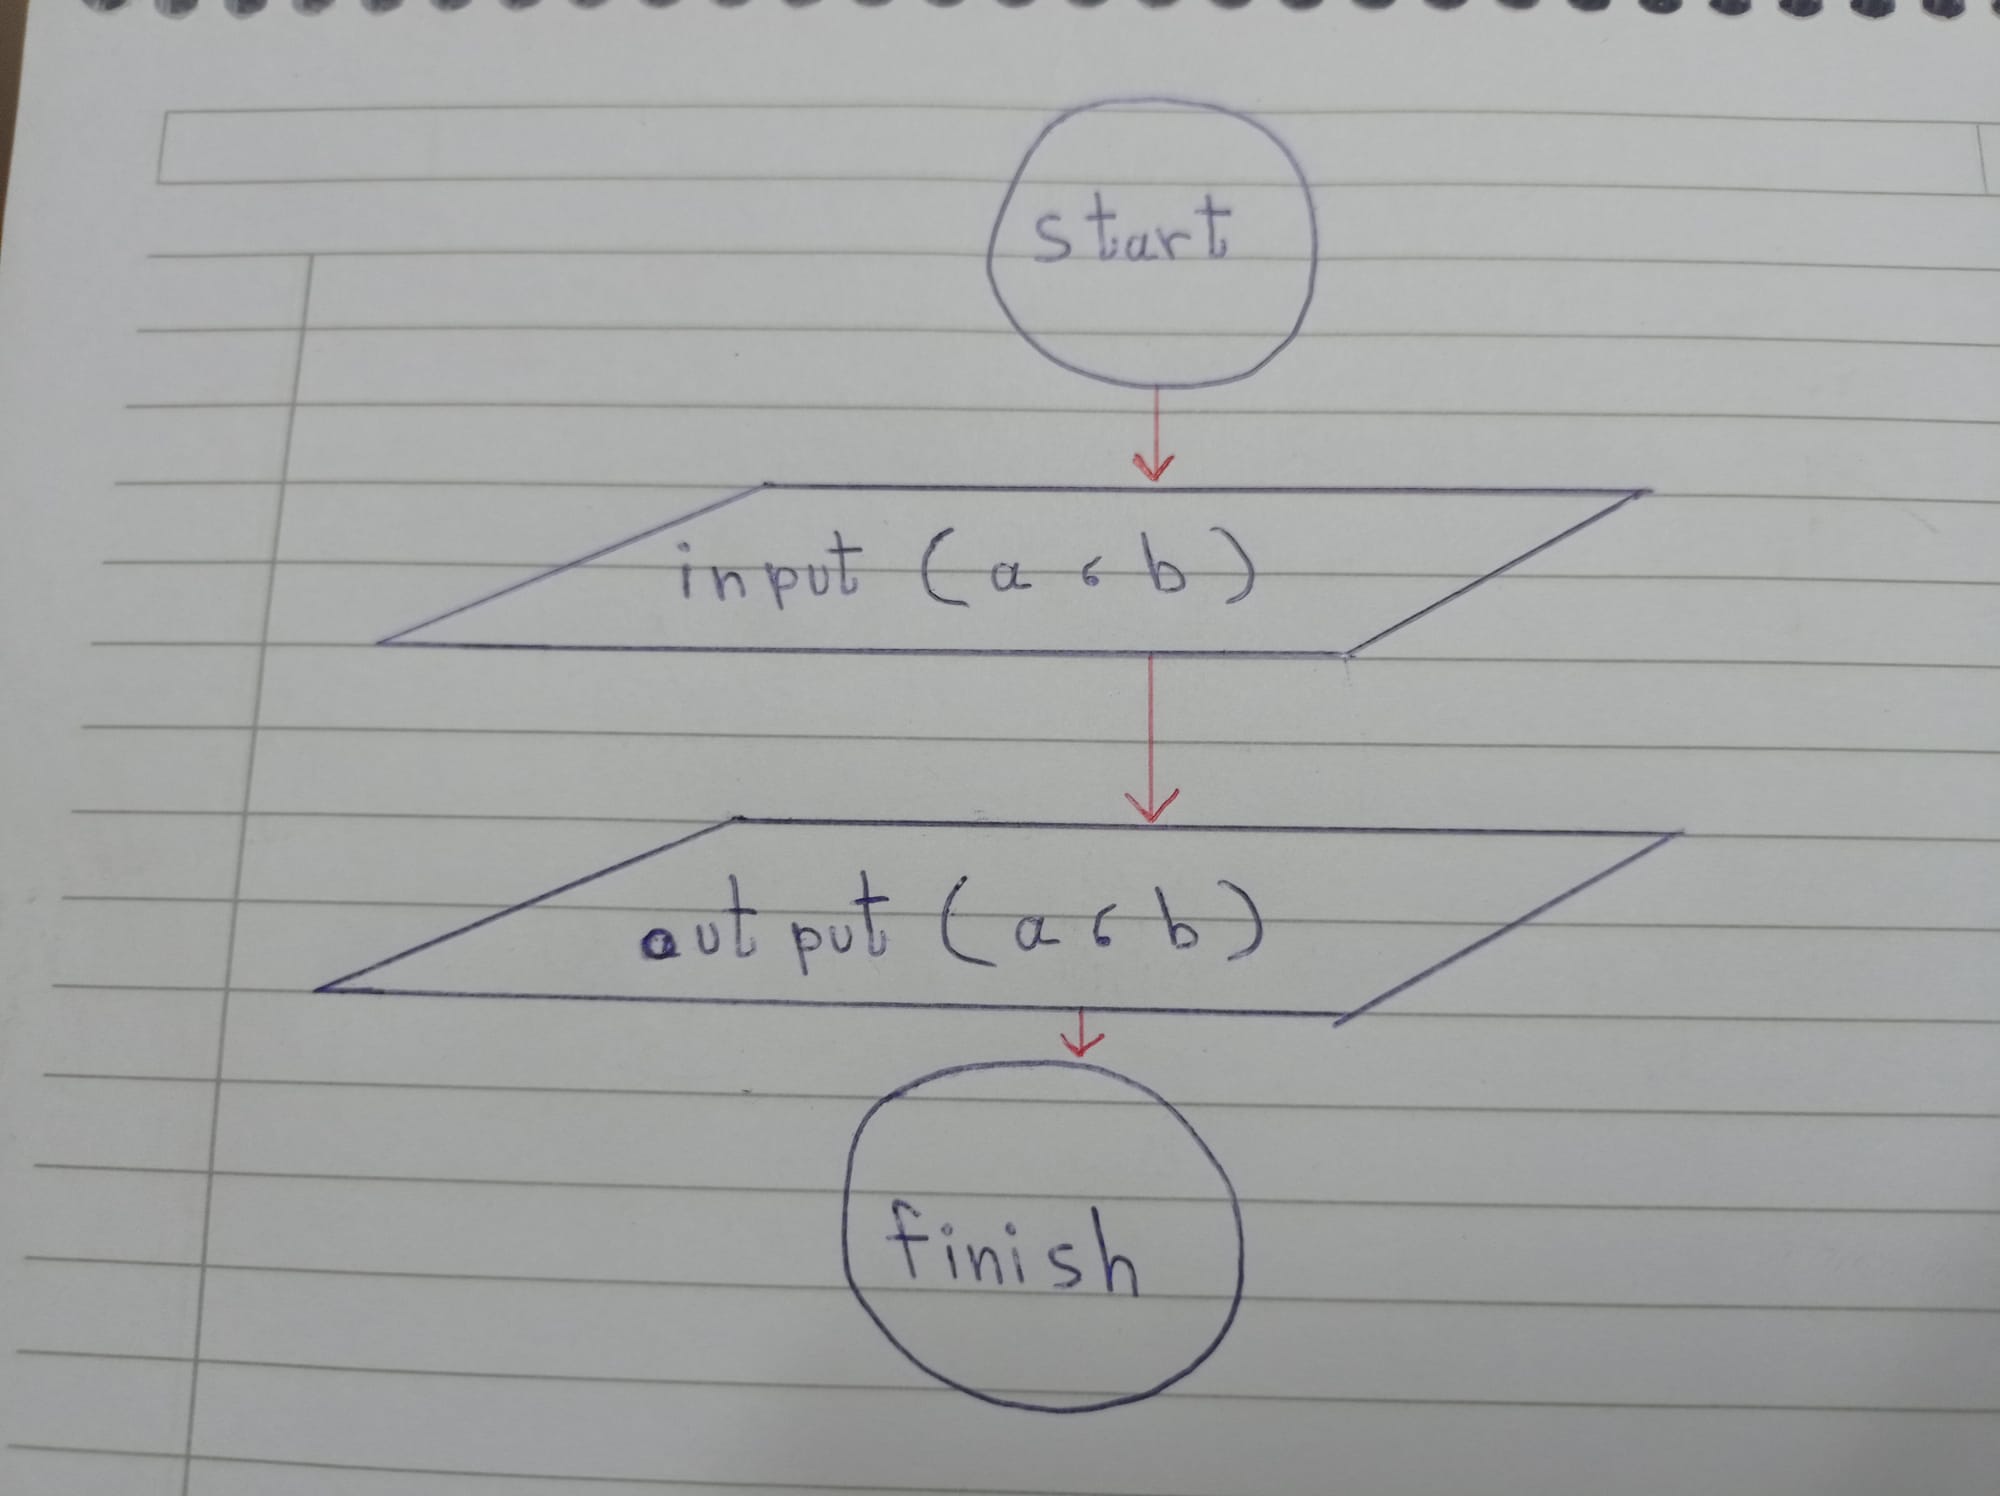 start
input (a ، b)
output (a ، b)
finish